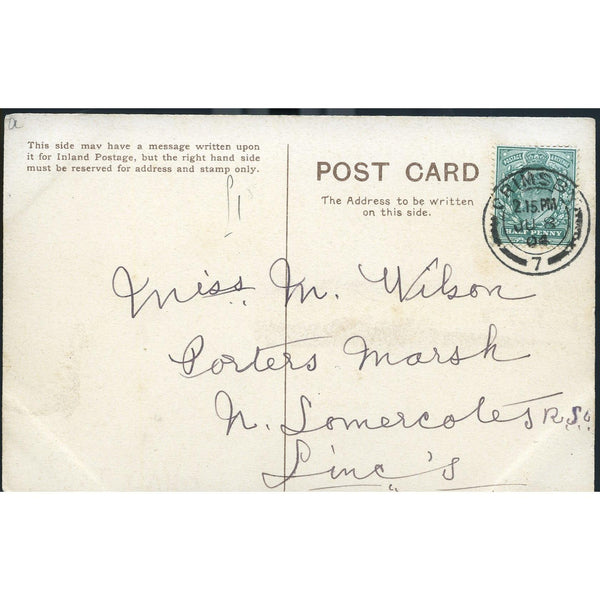 a
This side may have a message written upon
it for Inland Postage, but the right hand side
must be reserved for address and stamp only.
POST CARD
The Address to be written
on this side.
£1
GRIMSBY
2.15 PM
JU
04
7
HALF PENNY
Miss M. Wilson
Porters Marsh
N. Somercotes R.S.O.
Linc's